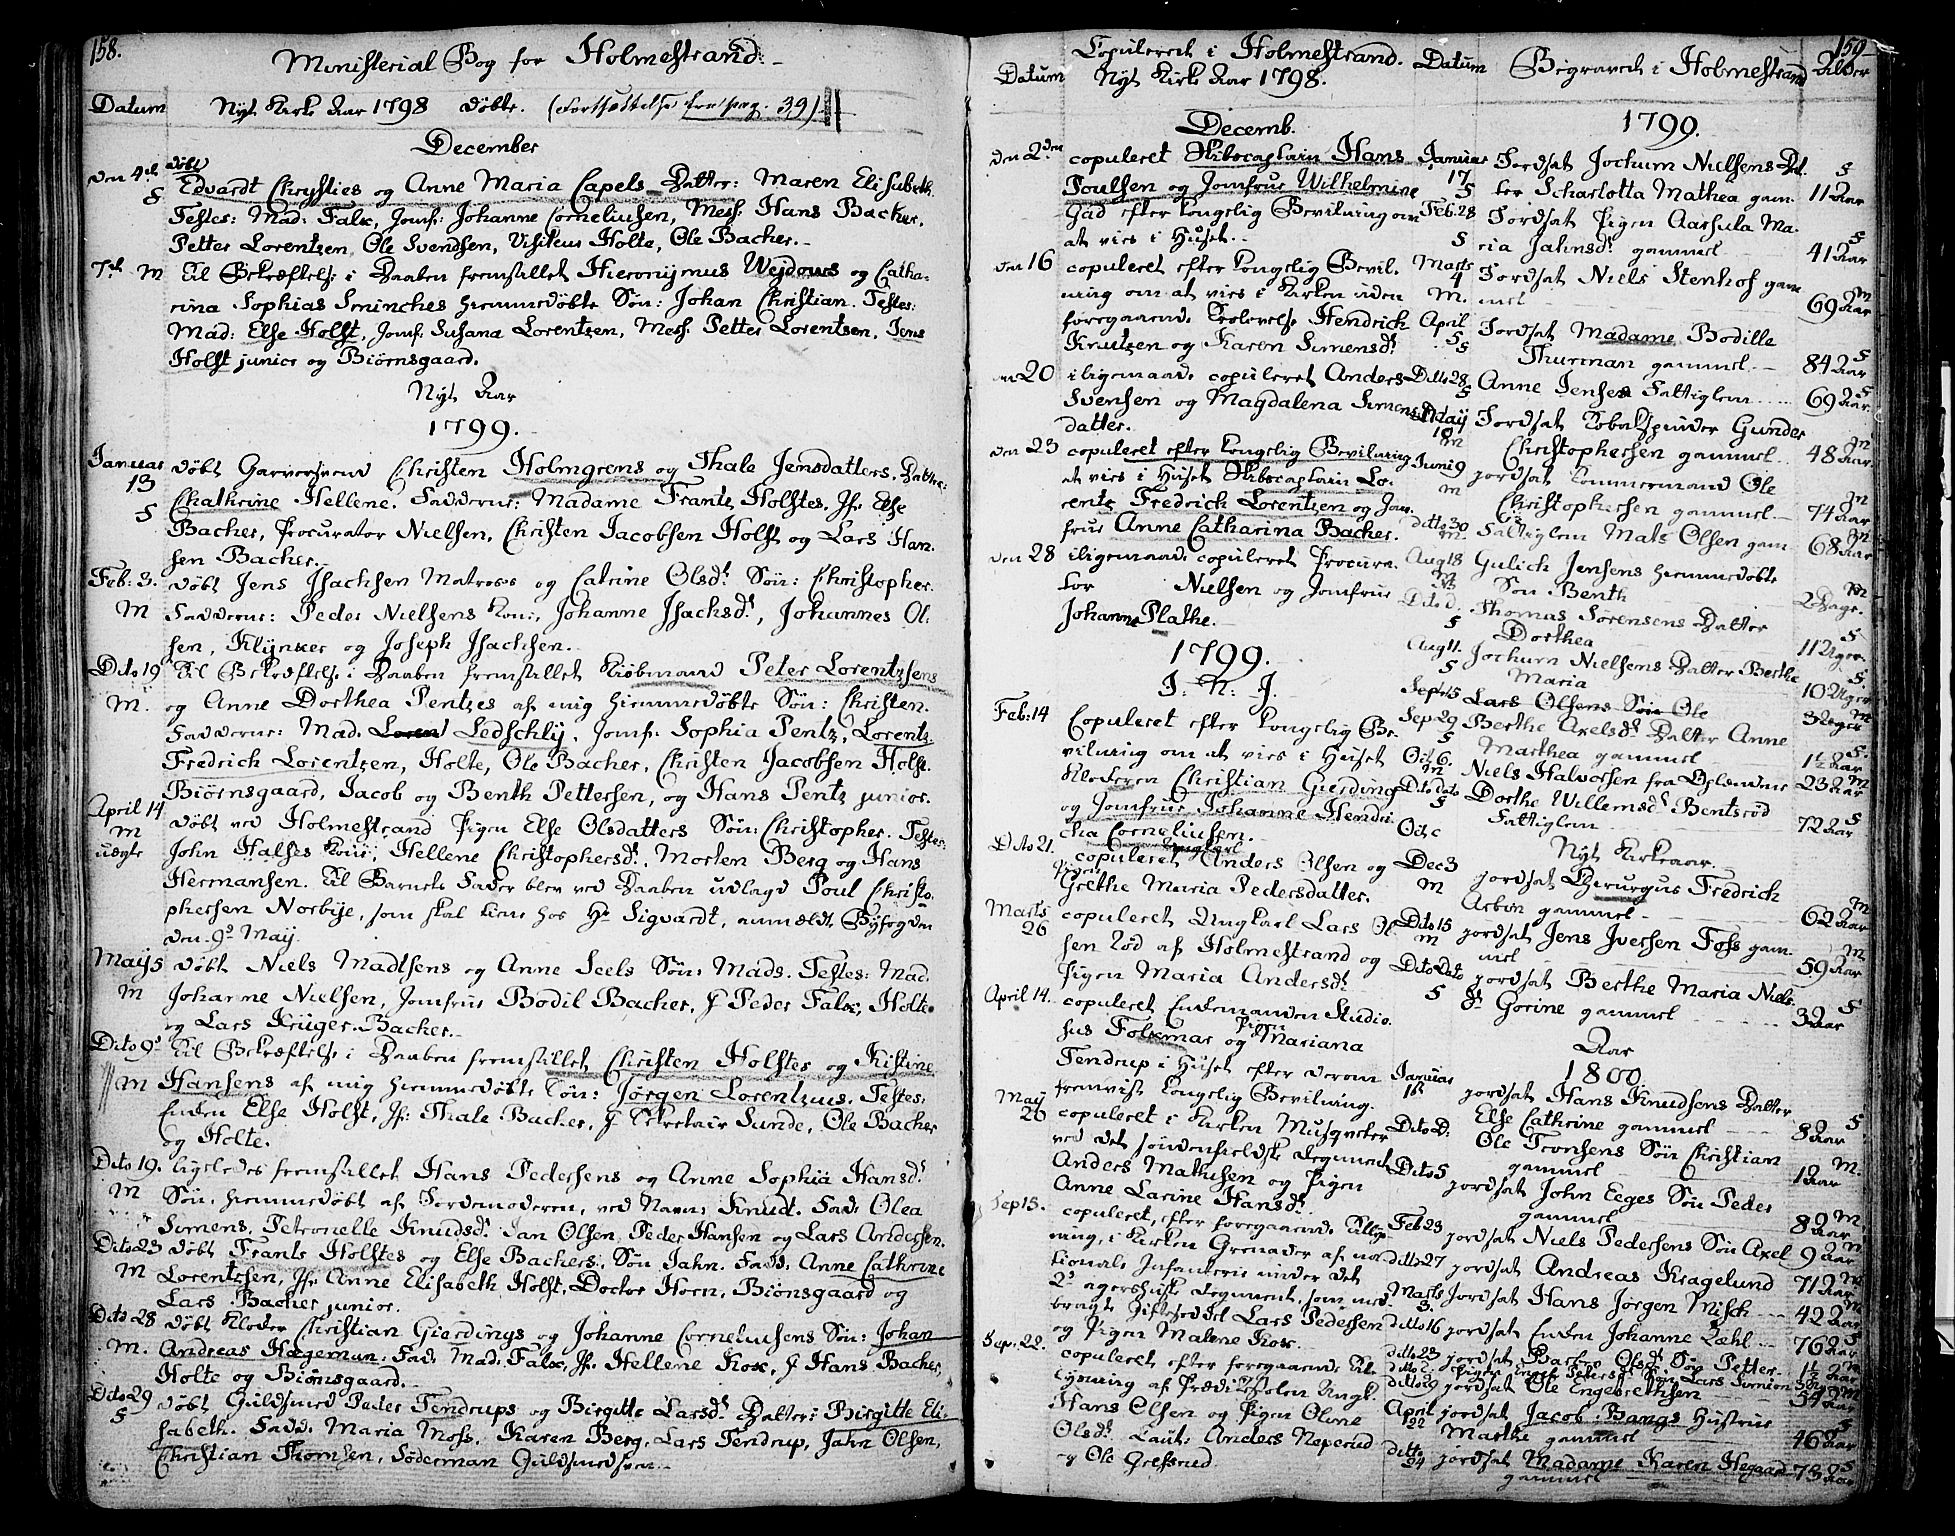 158.
Ministerial Bog for Holmestrand.
Datum Nyt Kirke Aar 1798 døbte. (Fortsættelse fra pag. 39)
December
den 4de døbt
Edvardt Chrysties og Anne Maria Capels Datter: Maren Elisabeth.
Testes: Mad: Falx, Jomf: Johanne Corneliusen, Mess. Hans Backer,
Petter Lorentzen, Ole Svendsen, Visiteur Holte, Ole Backer.
7de M Til Bekræftelse i Daaben fremstillet Hieronijmus Wejdoues og Catha-
rina Sophias Sminches hiemmedøbte Søn: Johan Christian. Testes:
Mad: Else Holst, Jomf. Susana Lorentzen, Mess. Petter Lorentsen, Jens
Holst junior og Biørnsgaard.
Nyt Aar
1799.
Januar døbt Garversvend Christen Holmgrens og Thale Jensdatters Datter:
13 Chathrine Hellene. Fadderne: Madame Frantz Holstes, Jfr. Else
S Backer, Procurator Nielsen, Christen Jacobsen Holst og Lars Han-
sen Backer.
Feb: 3. døbt Jens Isachsen Matros og Catrine Olsdr Søn: Christopher.
M Fadderne: Peder Nielsens Kone, Johanne Isachsdr, Johannes Ol-
sen, Klynker og Joseph Isachsen.
Dito 19 Til Bekræftelse i Daaben fremstillet Kiøbmand Peter Lorentzsens
M. og Anne Dorthea Pentzes af mig hiemmedøbte Søn: Christen.
Fadderne: Mad. Ledschly, Jomf. Sophia Pentz, Lorentz
Fredrich Lorentzen, Holte, Ole Backer, Christen Jacobsen Holst.
Biørnsgaard, Jacob og Benth Pettersen, og Hans Pentz junior.
April 14 døbt ved Holmestrand Pigen Else Olsdatters Søn: Christopher. Testes:
M John Halses Kone, Hellene Christophersdr, Morten Berg og Hans
uægte Hermansen. Til Barnets Fader blev ved Daaben udlagd Poul Christo-
phersen Norbye, som skal tiene hos Hr Sigvardt, anmeldt Byfogden
den 9de May.
May 5 døbt Niels Madtsens og Anne Seels Søn: Mads. Testes: Mad.
M Johanne Nielsen, Jomfrue Bodil Backer, Peder Falx, Holte
og Lars Krüger Backer.
Dito 9de Til Bekræftelse i Daaben fremstillet Christen Holstes og Kistine
M Hansens af mig hiemmedøbte Søn: Jørgen Lorentzius. Testes:
Enken Else Holst, Jfr: Thale Backer, Sekretair Sunde, Ole Backer
og Holte.
Dito 19. ligeledes fremstillet Hans Pedersens og Anne Sophia Hansdr
M Søn, hiemmedøbt af Jordemoderen, ved Navn: Knud. Fad: Olea
Simens, Petronelle Knudsdr, Jan Olsen, Peder Hansen og Lars Andersen.
Dito 23 døbt Frantz Holstes og Else Backers Søn Jahn. Fadd: Anne Cathrine
M Lorentzsen, Jfr Anne Elisabeth Holst, Doctor Horn, Biønsgaard og
Lars Backer junior.
Dito 28 døbt Kloker Christian Gierdings og Johanne Corneliusens Søn: Johan
M. Andreas Hægemun. Fad: Mad: Falx, Jfr. Hellene Kox, Hans Backer,
Holte og Biønsgaard.
Dito 29 døbt Guldsmed Peder Tendrups og Birgitte Larsdr Datter: Birgitte Eli-
S sabeth. Fadd: Maria Moss, Karen Berg, Lars Tendrup, Jahn Olsen,
Christian Thomsen, Søderman Guldsmedsven.
159
Datum Copuleret i Holmestrand.
Nyt Kirke Aar 1798.
Decemb.
den 2den copuleret Skibscaptain Hans
Poulsen og Jomfrue Wilhelmine
Gad efter Kongelig Bevilning om
at vies i Huset.
den 16 copuleret efter Kongelig Bevil-
ning om at vies i Kirken uden
foregaaende Trolovelse Hendrich
Knutzen og Karen Simensdr
20 iligemaade copuleret Anders
Svensen og Magdalena Simens
datter.
den 23 copuleret efter Kongelig Bevilning
at vies i Huset Skibscaptain Lo-
rentz Fredrich Lorentzen og Jom-
frue Anne Catharina Backer.
den 28 iligemaade copuleret Procura-
tor Nielsen og Jomfrue
Johanne Plathe.
1799.
I: N: J.
Feb: 14 Copuleret efter Kongelig Be-
vilning om at vies i Huset
Klockeren Christian Gierding
og Jomfrue Johanne Hendri-
cha Corneliusen.
Dito 21. copuleret Ungkarl Anders Olsen og
Pigen Grethe Maria Pedersdatter.
Marts copuleret Ungkarl Lars Ol-
26 sen Rød af Holmestrand og
Pigen Maria Andersdr
April 14. copuleret Enkemanden Studio-
sus Folkmar og Pigen Mariana
Tendrup i Huset efter derom
fremvist Kongelig Bevilning.
May copuleret i Kirken Musqveter
26 ved det søndenfieldske Regiment
Anders Mathisen og Pigen
Anne Larine Hansdr.
Sep 15. copuleret, efter foregaaende Tillys-
ning, i Kirken Grenader af na-
tionale Infanterie under det
2det agershuske Regiment, som med-
bragte Giftesedel Lars Pedersen
og Pigen Malene Kox.
Sep: 22. copuleret efter foregaaende Til-
lysning af Prædikestolen Ungk.
Hans Olsen og Pigen Oline
Olsdr. Caut: Anders Neperud
og Ole Grefsrud.
Datum Begravet i Holmestrand Alder
1799.
Januar 17 S Jordsat Jochum Nielsens Dat-
ter Scharlotta Mathea gam- 11 Aar
Feb. 28 S Jordsat Pigen Aarsula Ma-
ria Jahnsdr. gammel 41 Aar
Marts 4 M. Jordsat Niels Stenhof gam
mel 69 Aar
April 5 S Jordsat Madame Bodille
Thurman gammel 84 Aar
Ditto 28 S Anne Jensen Fattiglem 69 Aar
May 18 M Jordsat Tobakspinder Gunder
Christophersen gammel 48 Aar
Juni 9 M jordsat Tømmermand Ole
Christophersen gammel 74 Aar
ditto 30 M. Fattiglem Mats Olsen gam 68 Aar
Aug 18 M Gulich Jensens hiemmedøbte
Søn Benth 2 Dage.
Dito d. S Thomas Sørensens Datter
Dorthea 11 Uger.
Aug 11. S Jochum Nielsens Datter Berthe
Maria 10 Uger
Sept 15 Lars Olsens Søn Ole 3 Uger
Sep 29 S Berthe Axelsdr Datter Anne
Marthea gammel 1½ Aar
Oct 6. M Niels Halvorsen fra 23 Aar
Dito dato S Dorthe Willemsdr Bentsrød
Fattiglem 72 Aar
Nyt Kirkeaar.
Dec 3 M jordsat Chirurgus Fredrich
Arbin gammel 62 Aar
Dito 15 M jordsat Jens Iversen Foss gam-
mel 59 Aar
Dito Dato S jordsat Berthe Maria Niels
dr Gorine gammel 3 Aar
Aar
1800
Januar 1st jordsat Hans Knudsens Datter
Else Cathrine gammel 8 Aar
Dito D: Ole Tronsens Søn Christian
gammel 1 Aar
Dito 5 jordsat John Eeges Søn Peder
gammel 8 Aar
Feb 23 jordsat Niels Pedersens Søn Axel 9 Aar
ditto 27 jordsat Andreas Kragelund 71 Aar
Marts 3. Jordsat Hans Jørgen Misch 42 Aar
ditto 16 jordsat Enken Johanne Dahl 76 Aar
ditto 23 jordsat Olsdr Søn Petter 1½ Aar
Søn Lars Simen
jordsat Ole Engebrethsen 54 Aar
April 22 jordsat Jacob Bangs Hustrue
Marthe gammel 46 Aar
ditto 24 jordsat Madame Karen Hegaard
gammel 73 Aar